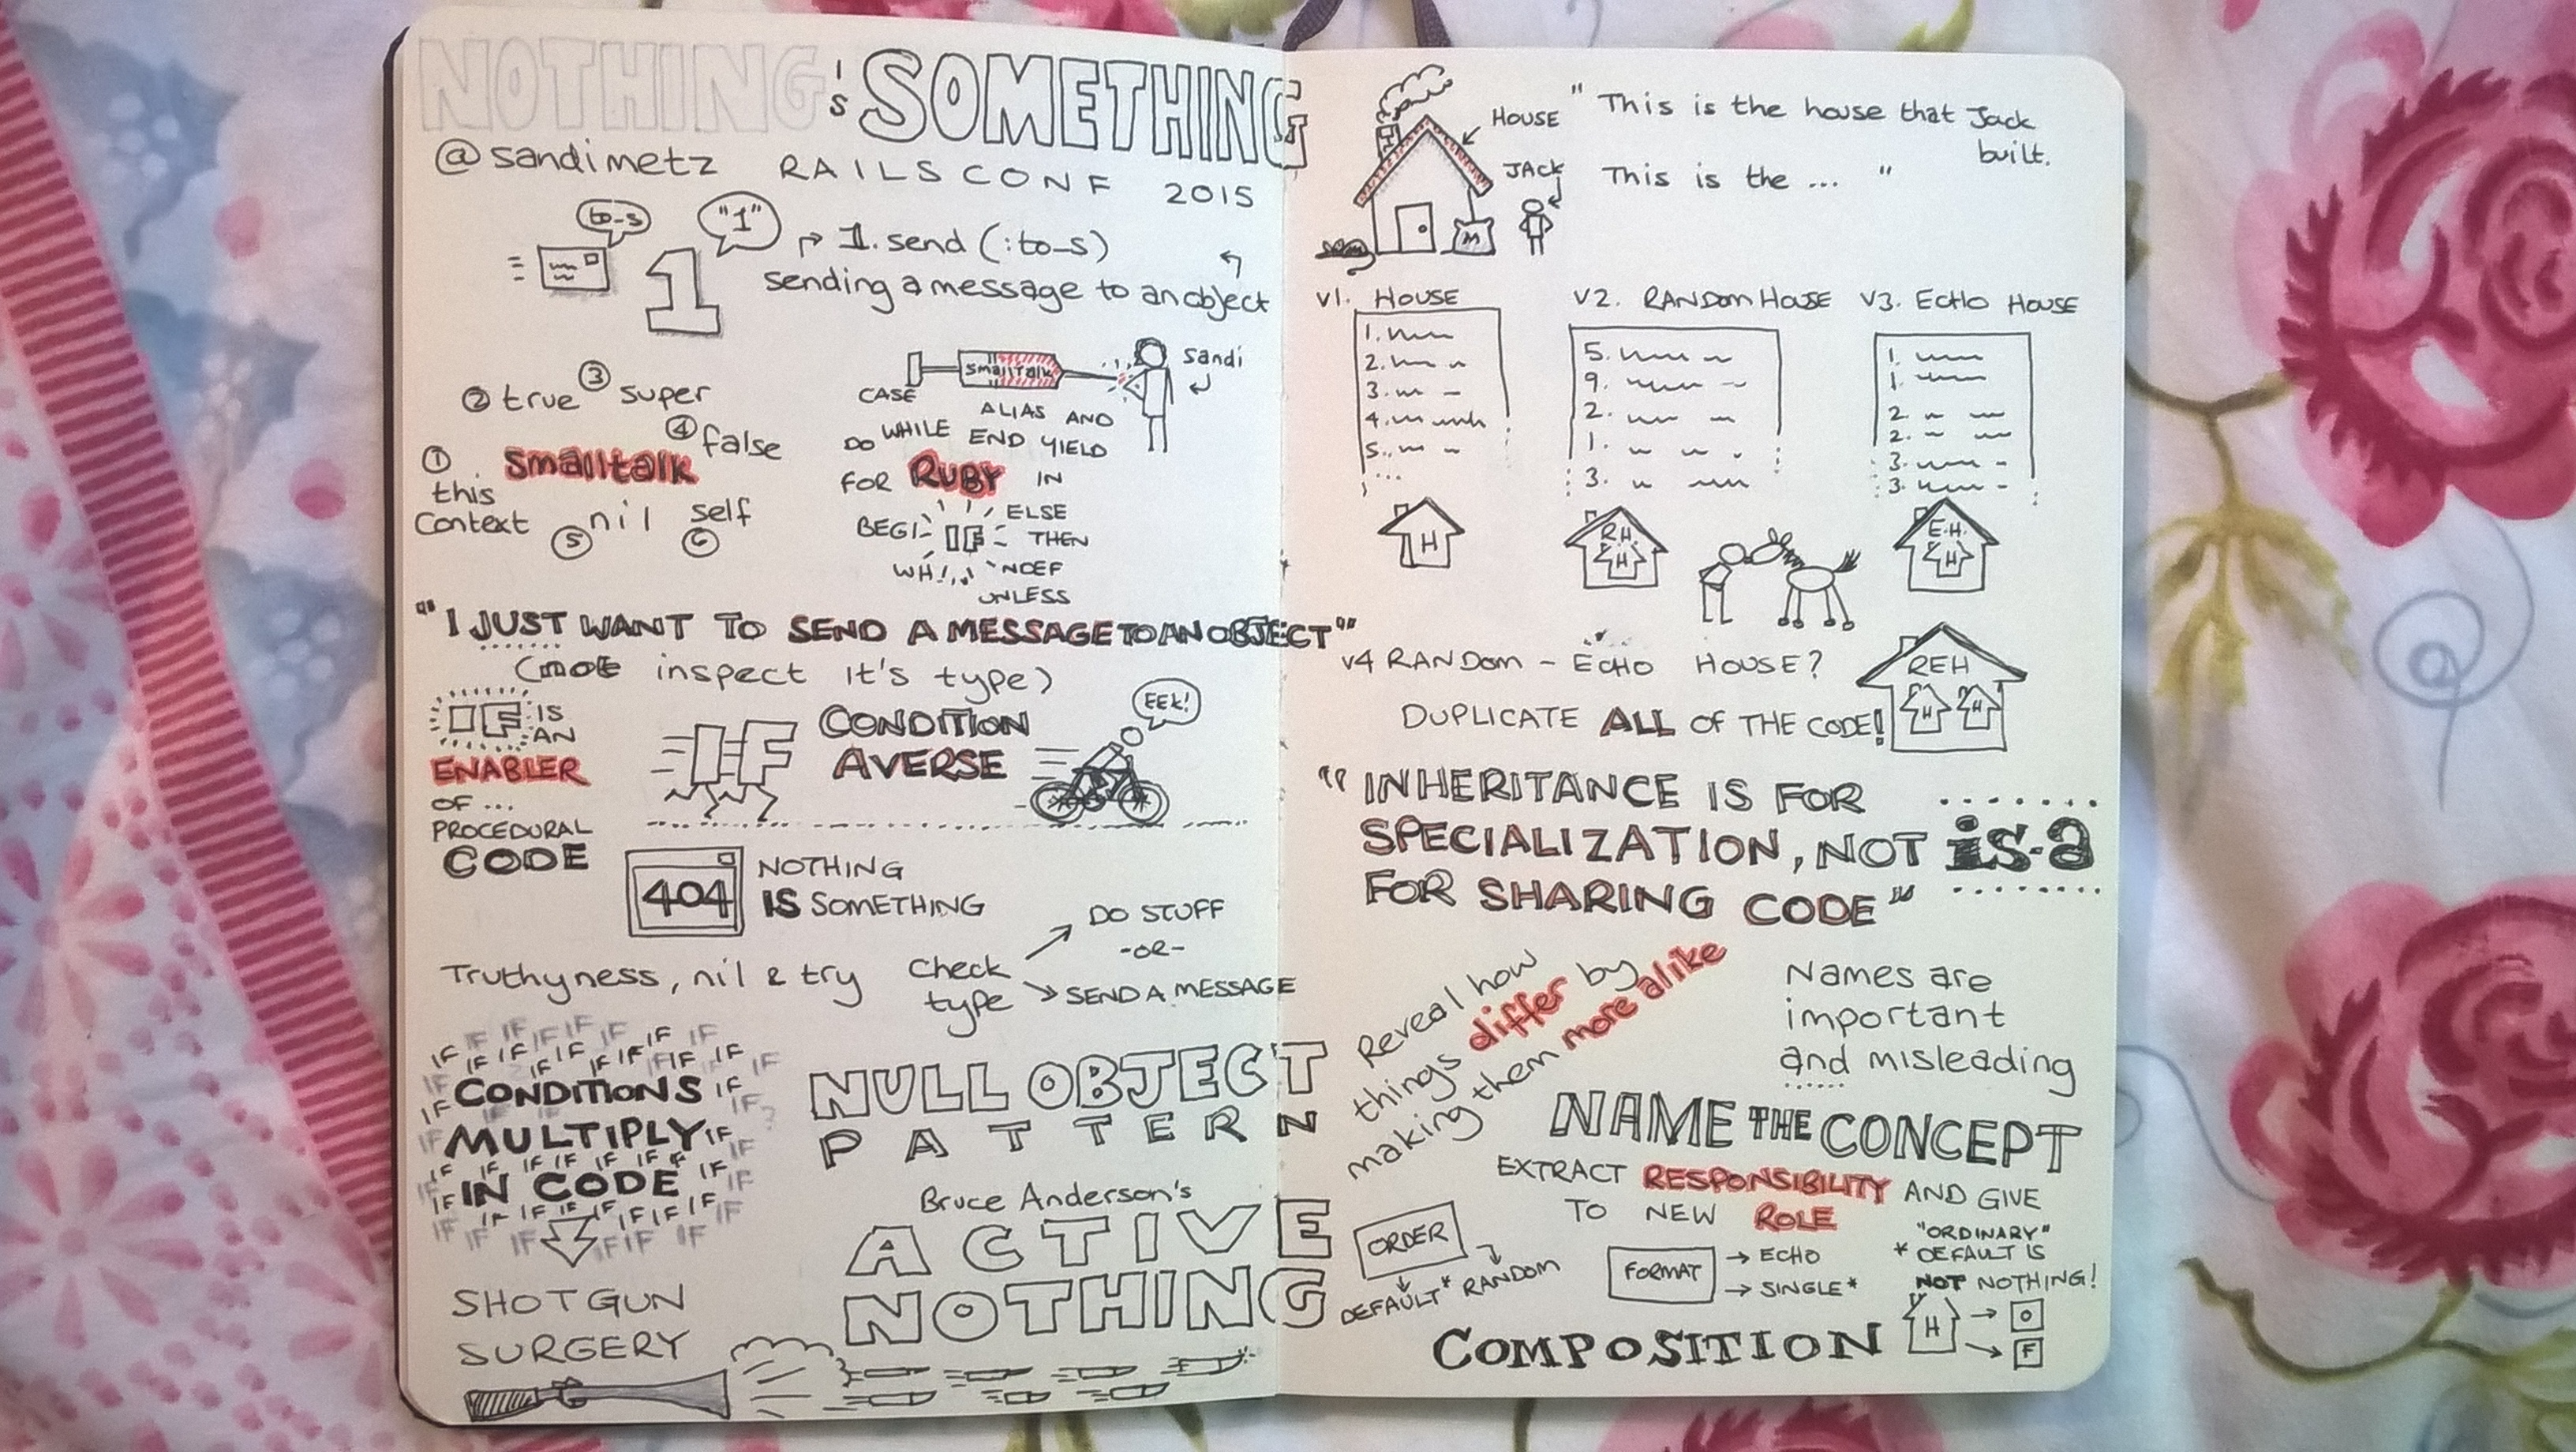 NOTHING IS SOMETHING
@sandimetz RAILSCONF 2015
to_s
"1"
1
1.send(:to_s)
sending a message to an object
② true ③ super
④ false
① this Context
Smalltalk
⑤ nil ⑥ self
Smalltalk
Sandi
CASE ALIAS AND
DO WHILE END YIELD
FOR RUBY IN
BEGI IF ELSE
THEN
WH NDEF
UNLESS
"I JUST WANT TO SEND A MESSAGE TO AN OBJECT"
(not inspect it's type)
IF IS
AN
ENABLER
OF ...
PROCEDURAL
CODE
IF
CONDITION
AVERSE
EEK!
404
NOTHING
IS SOMETHING
Truthyness, nil & try
Check
type
DO STUFF
-OR-
SEND A MESSAGE
IF IF IF IF IF IF
IF IF IF IF IF IF IF IF IF
CONDITIONS IF
IF IF
MULTIPLY IF
IF IF IF IF IF IF IF
IN CODE IF
IF IF IF IF IF IF IF IF
IF IF IF IF IF IF
SHOTGUN
SURGERY
NULL OBJECT
PATTERN
Bruce Anderson's
ACTIVE
NOTHING
HOUSE
JACK
M
"This is the house that Jack
built.
This is the ... "
V1. HOUSE
1.
2.
3.
4.
5.
...
H
V2. RANDOM HOUSE
5.
9.
2.
1.
3.
R.H.
H
V3. ECHO HOUSE
1.
1.
2
2.
3.
3.
E.H.
H
V4 RANDOM - ECHO HOUSE?
REH
H H
DUPLICATE ALL OF THE CODE!
"INHERITANCE IS FOR
SPECIALIZATION, NOT
FOR SHARING CODE"
is-a
Reveal how
things differ by
making them more alike
Names are
important
and misleading
NAME THE CONCEPT
EXTRACT RESPONSIBILITY AND GIVE
TO NEW ROLE
ORDER
DEFAULT* RANDOM
FORMAT
→ ECHO
→ SINGLE*
"ORDINARY"
* DEFAULT IS
NOT NOTHING!
COMPOSITION
H → O
→ F